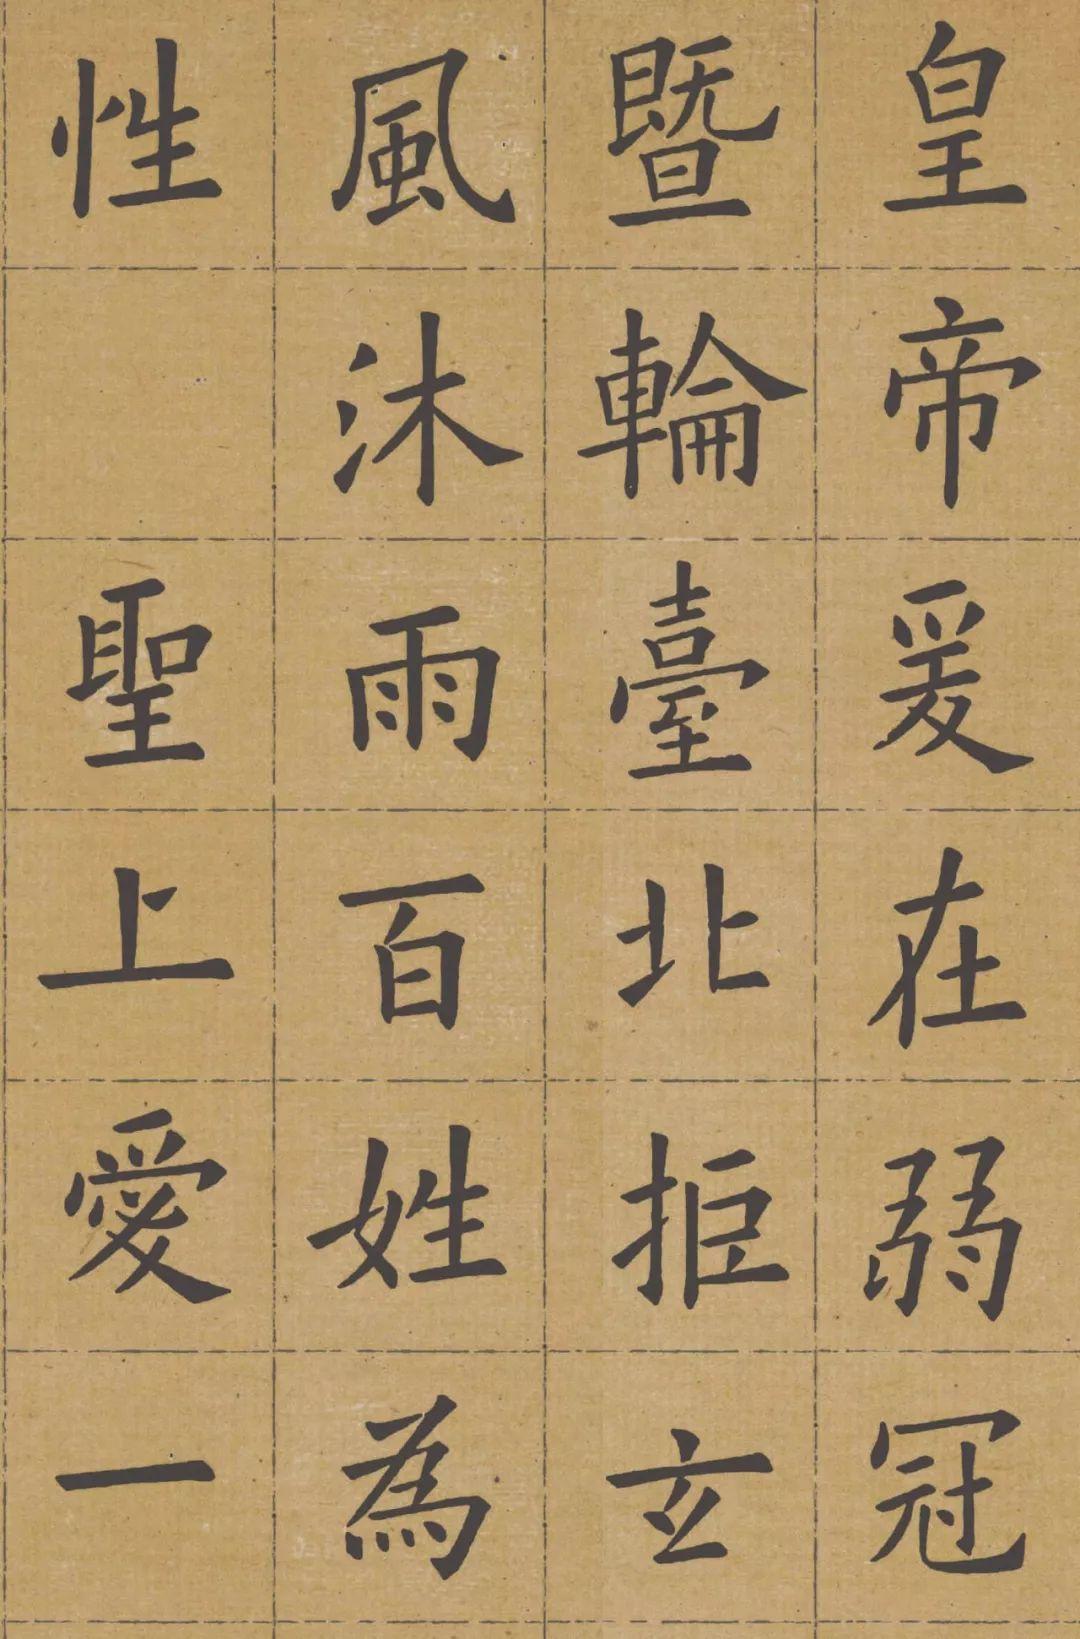 皇帝爰在弱冠
暨輪臺北拒玄
風沐雨百姓為
性聖上愛一